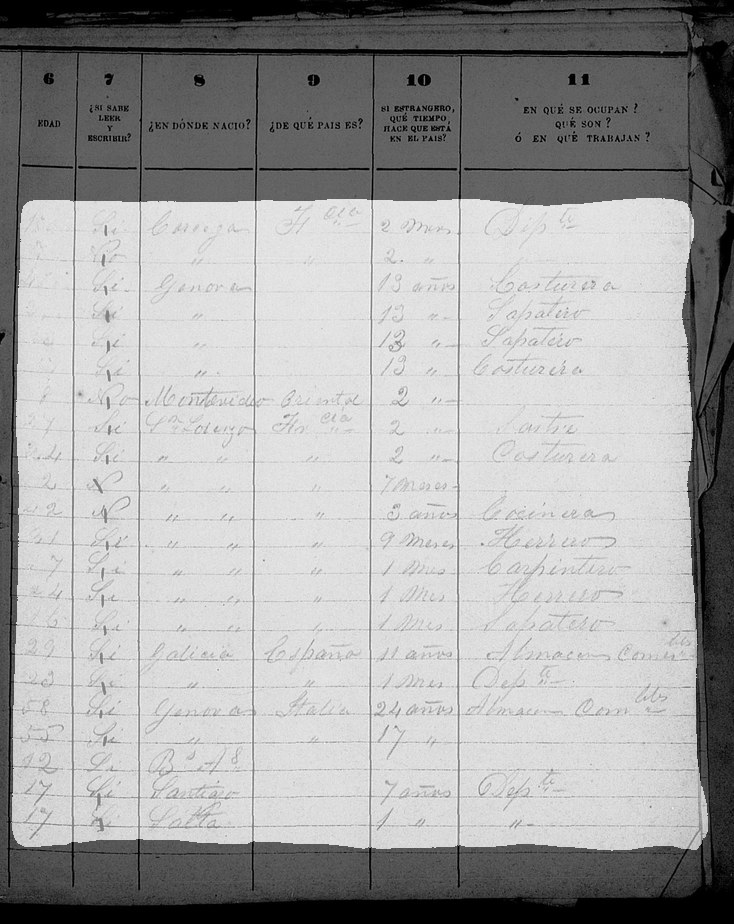 6 7 8 9 10 11
EDAD ¿SI SABE LEER Y ESCRIBIR? ¿EN DÓNDE NACIO? ¿DE QUÉ PAIS ES? SI ESTRANGERO, QUÉ TIEMPO, HACE QUE ESTÁ EN EL PAIS? EN QUÉ SE OCUPAN? QUÉ SON? Ó EN QUÉ TRABAJAN?
Si Fr cia 2 Mes Dep te
No " " 2 "
Si Genova 13 años Costurera
Si " 13 " Sapatero
Si " 13 " Sapatero
Si " 13 " Costurera
8 No Montevideo Oriental 2 "
Si Sn Lorenzo Fr cia 2 " Sastre
24 Si " " " 2 " Costurera
2 N " " " 7 Meses
42 N " " " 3 años Cocinera
Si " " " 9 Meses Herrero
Si " " " 1 Mes Carpintero
Si " " " 1 Mes Herrero
Si " " " 1 Mes Sapatero
29 Si Galicia España 11 años Almacen Comes tbls
23 Si " " 1 Mes Dep te
58 Si Genova Italia 24 años Almacen Com tbls
55 Si " " 17 "
Si Bs As
17 Si Santiago 7 años Dep te
17 Salta 1 " "